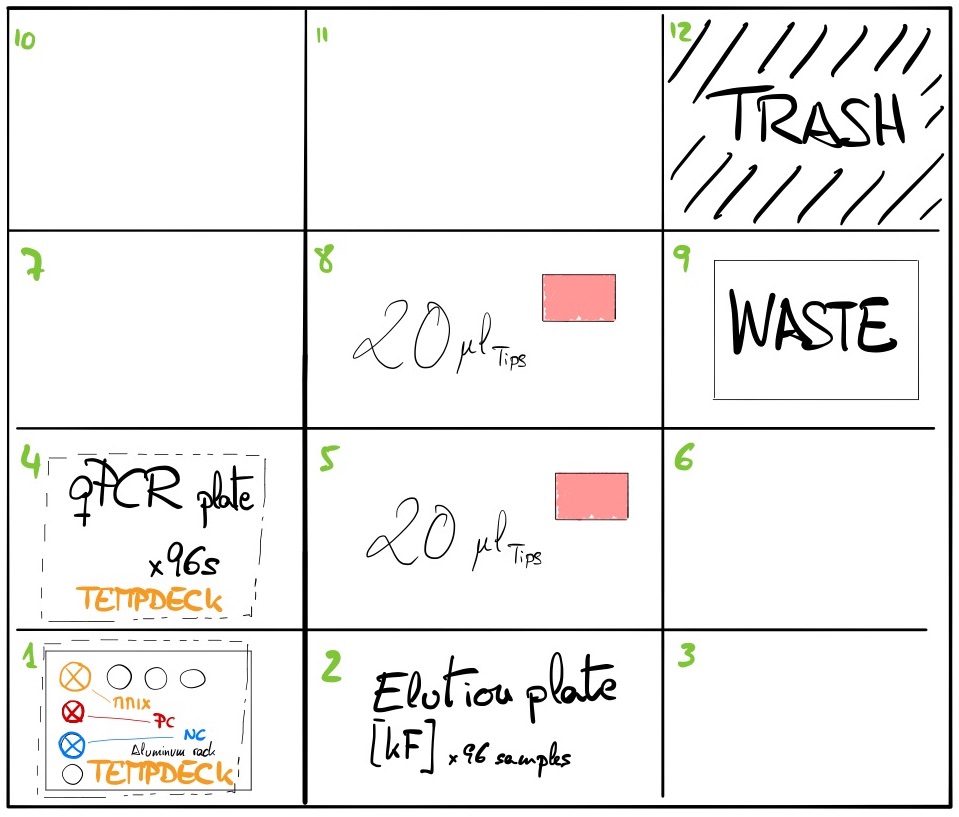 10
11
12
TRASH
7
8
20 µl Tips
9
WASTE
4
qPCR plate
x96s
TEMPDECK
5
20 µl Tips
6
1
mix
PC
NC
Aluminum rack
TEMPDECK
2
Elution plate
[kF] x96 samples
3